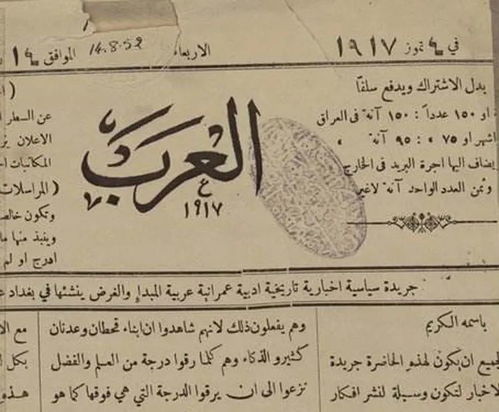 في ٤ تموز ١٩١٧
الاربعاء
الموافق ١٤
14.8.52
بدل الاشتراك ويدفع سلفاً
١٥٠ عدداً : ١٥٠ آنة في العراق
اشهر او ٧٥ » : ٩٥ آنة »
يضاف اليها اجرة البريد في الخارج
وثمن العدد الواحد آنة لاغير
العرب
١٩١٧
عن السطر
الاعلان
المكاتبات
( المراسلات
وتكون خالصة
وينبذ منها ما
ادرج او لم
جريدة سياسية اخبارية تاريخية ادبية عمرانية عربية المبدإ والغرض ينشئها في بغداد
باسمه الكريم
لجميع ان يكون لهذه الحاضرة جريدة
لاخبار لتكون وسيلة لنشر افكار
وهم يفعلون ذلك لانهم شاهدوا ان ابناء قحطان وعدنان
كثيرو الذكاء وهم كلما رقوا درجة من العلم والفضل
نزعوا الى ان يرقوا الدرجة التي هي فوقها كما هو
مع
بكل